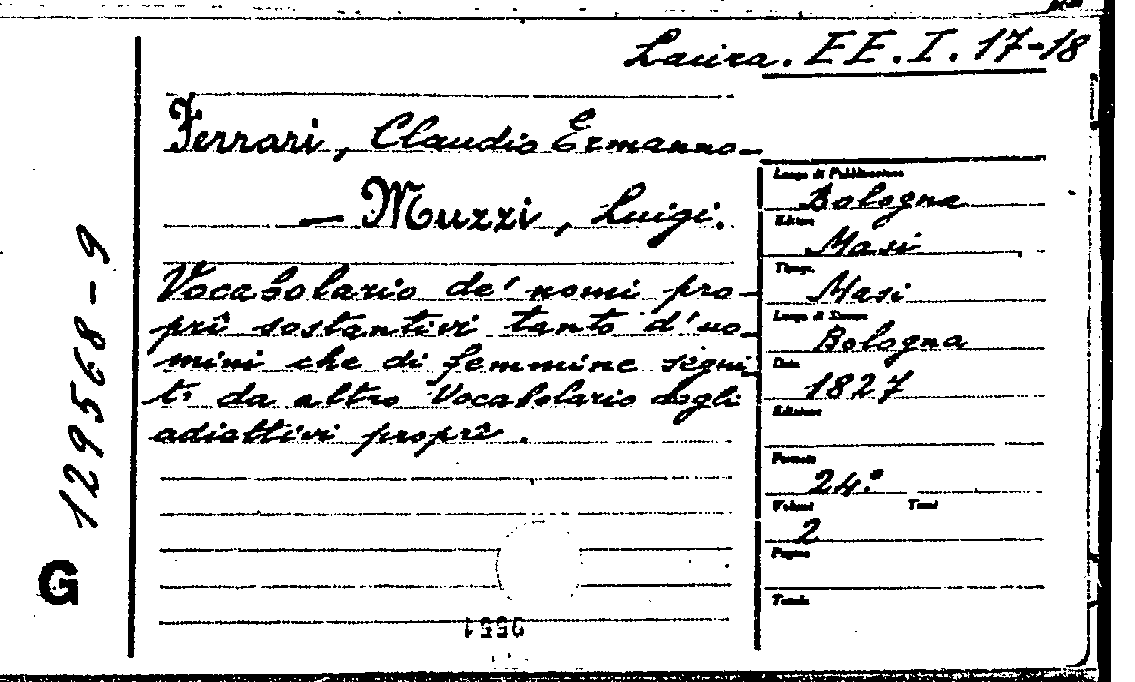 Laura. EE. I. 17-18
Ferrari, Claudio Ermanno-
- Muzzi, Luigi.
Vocabolario de' nomi pro-
prî sostantivi tanto d'uo-
mini che di femmine segui-
ti da altro Vocabolario degli
adiettivi proprî.
Luogo di Pubblicazione
Bologna
Editore
Masi
Tipogr.
Masi
Luogo di Stampa
Bologna
Data
1827
Edizione
Formato
24.º
Volumi Tomi
2
Pagine
Tavole
G 129568-9
9551